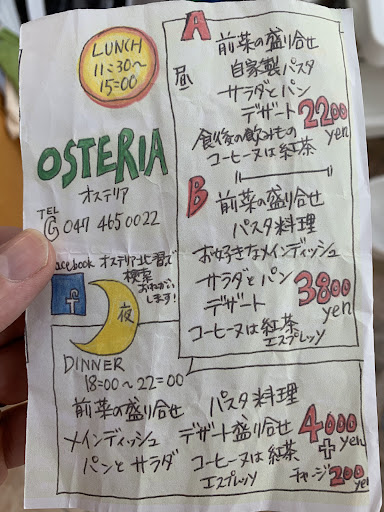 LUNCH
11:30〜
15:00
OSTERIA
オステリア
TEL
047 465 0022
acebook オステリア北習で
検索
おねがい
します!
f
昼
A
前菜の盛り合せ
自家製パスタ
サラダとパン
デザート 2200
yen
食後の飲みもの
コーヒーヌは紅茶
B
前菜の盛り合せ
パスタ料理
お好きなメインディッシュ
サラダとパン
デザート 3800
yen
コーヒーヌは紅茶
エスプレッソ
夜
DINNER
18:00〜22:00
前菜の盛り合せ
メインディッシュ
パンとサラダ
パスタ料理
デザート盛り合せ 4000
yen
コーヒーヌは紅茶 +
エスプレッソ
チャージ 200
yen